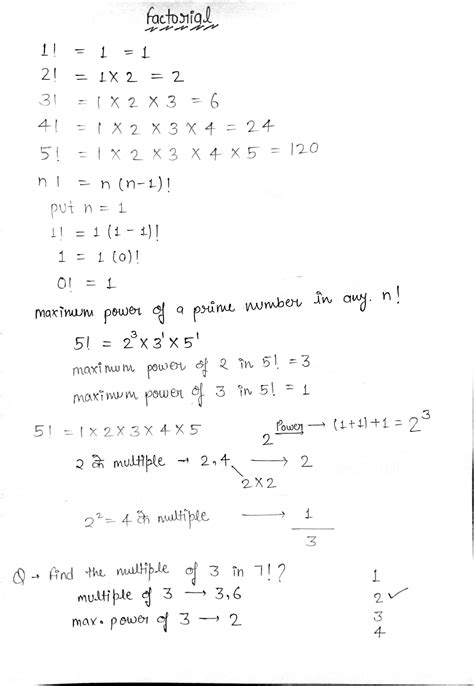 factorial
1! = 1 = 1
2! = 1 × 2 = 2
3! = 1 × 2 × 3 = 6
4! = 1 × 2 × 3 × 4 = 24
5! = 1 × 2 × 3 × 4 × 5 = 120
n! = n (n-1)!
put n = 1
1! = 1 (1 - 1)!
1 = 1 (0)!
0! = 1
maximum power of a prime number in any. n!
5! = 2³ × 3¹ × 5¹
maximum power of 2 in 5! = 3
maximum power of 3 in 5! = 1
5! = 1 × 2 × 3 × 4 × 5
2 Power → (1+1)+1 = 2³
2 के multiple → 2, 4 → 2
2×2
2² = 4 के multiple → 1
3
Q → find the multiple of 3 in 7!?
multiple of 3 → 3,6
max. power of 3 → 2
1
2 ✓
3
4